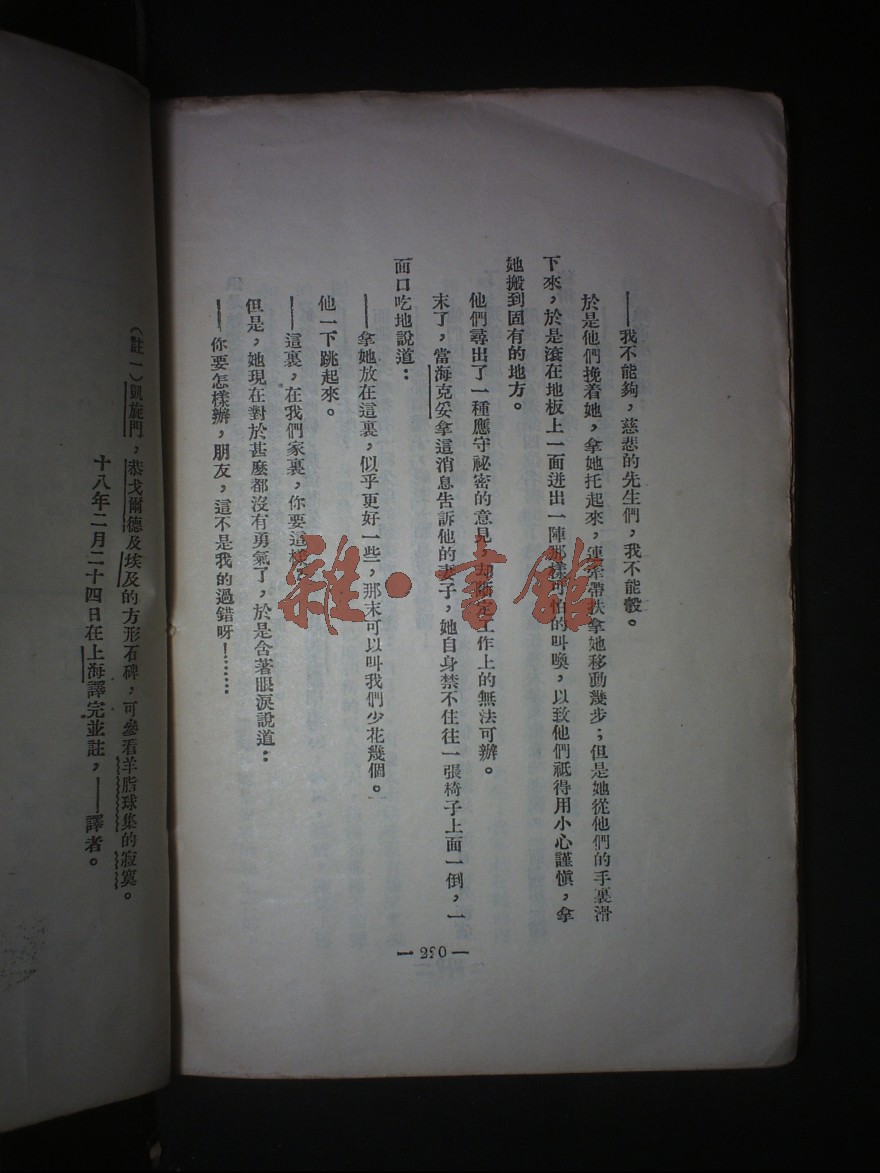 ——我不能夠，慈悲的先生們，我不能彀。
於是他們挽着她，拿她托起來，連牽帶扶拿她移動幾步；但是她從他們的手裏滑
下來，於是滚在地板上一面迸出一陣那樣可怕的叫喚，以致他們祇得用小心謹愼，拿
她搬到固有的地方。
他們尋出了一種應守祕密的意見，却斷定工作上的無法可辦。
末了，當海克妥拿這消息告訴他的妻子，她自身禁不住往一張椅子上面一倒，一
面口吃地說道：
——拿她放在這裏，似乎更好一些，那末可以叫我們少花幾個。
他一下跳起來。
——這裏，在我們家裏，你要這樣
但是，她現在對於甚麽都沒有勇氣了，於是含著眼淚說道：
——你要怎樣辦，朋友，這不是我的過錯呀！………
— 290 —
（註一）凱旋門，恭戈爾德及埃及的方形石碑，可參看羊脂球集的寂寞。
十八年二月二十四日在上海譯完並註，——譯者。
雜·書館